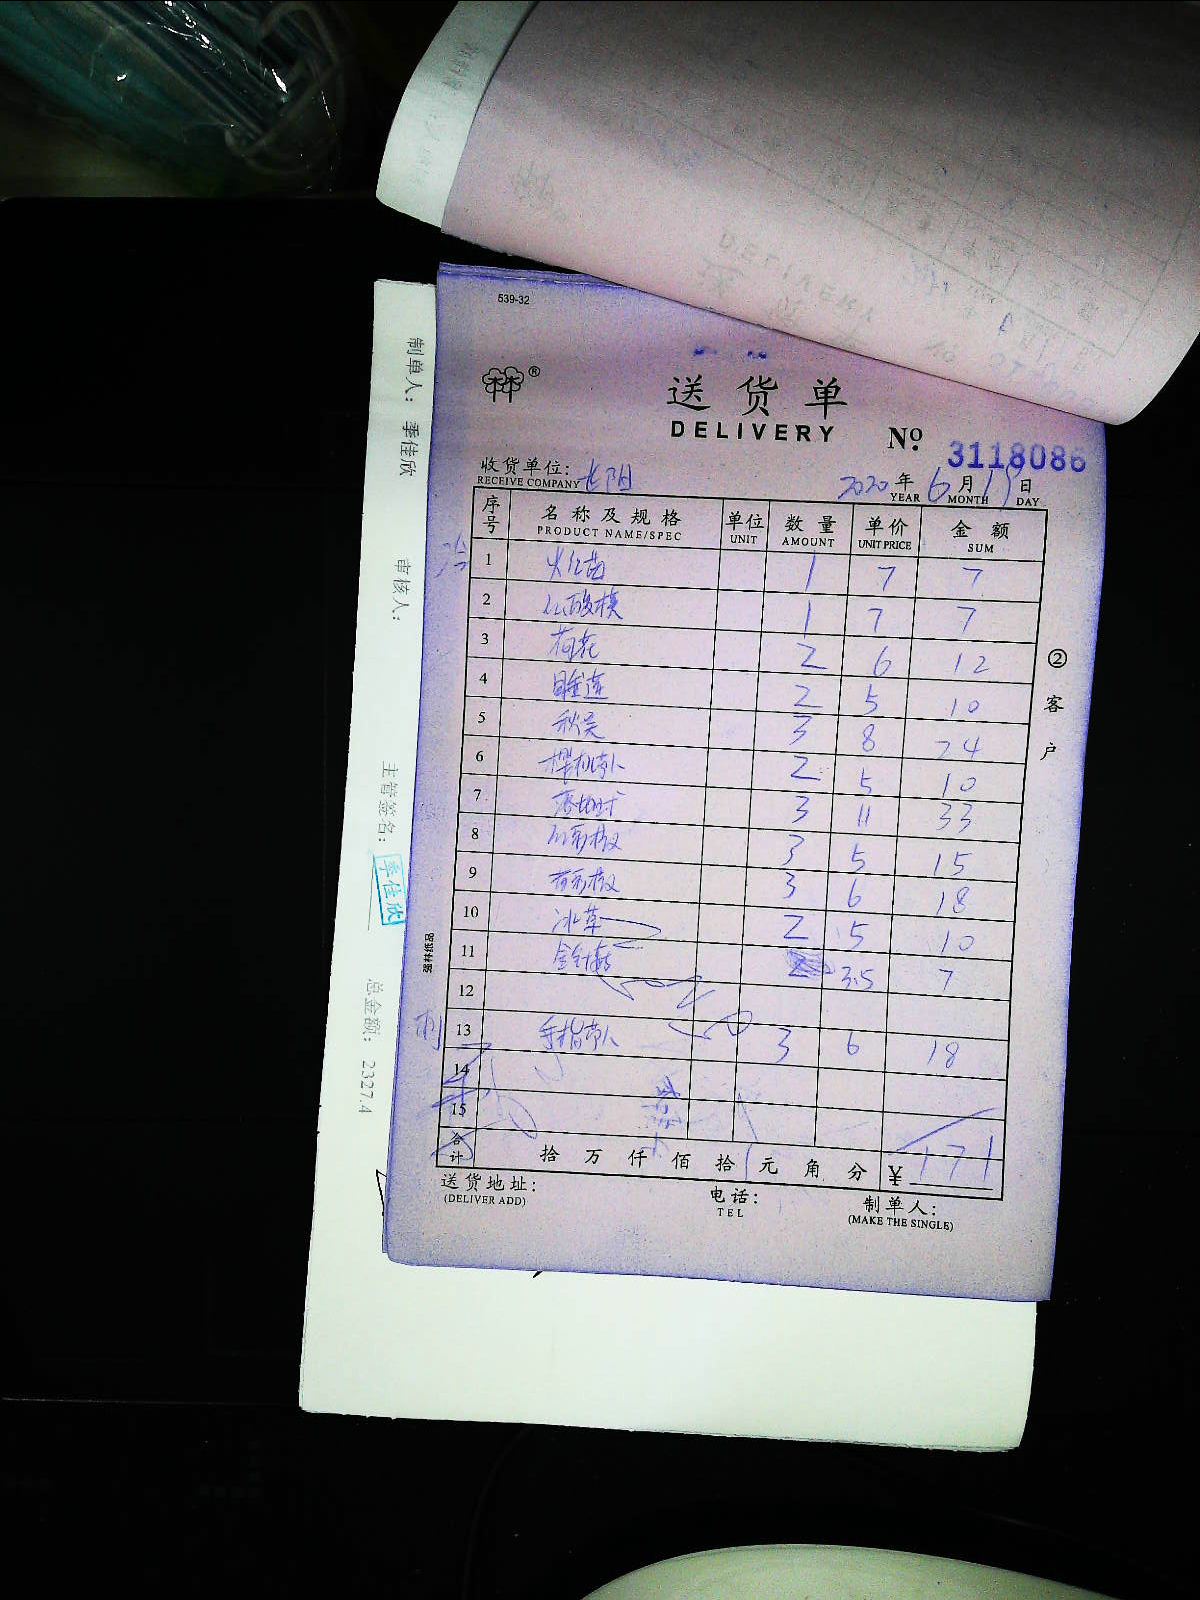 539-32
送货单
DELIVERY
№ 3118086
收货单位: 长阳
RECEIVE COMPANY
2020 年 6 月 19 日
YEAR MONTH DAY
序号 名称及规格 单位 数量 单价 金额
PRODUCT NAME/SPEC UNIT AMOUNT UNIT PRICE SUM
1 火红苗 1 7 7
2 1 7 7
3 荷花 2 6 12
4 睡莲 2 5 10
5 秋葵 3 8 24
6 2 5 10
7 3 11 33
8 红彩椒 3 5 15
9 黄彩椒 3 6 18
10 冰草 2 5 10
11 金针菇 3.5 7
12
13 3 6 18
14
15
合计 拾 万 仟 佰 拾 元 角 分 ¥ 171
送货地址:
(DELIVER ADD)
电话:
TEL
制单人:
(MAKE THE SINGLE)
②客户
强林纸品
制单人: 季佳欣
审核人:
主管签名: 季佳欣
总金额: 2327.4